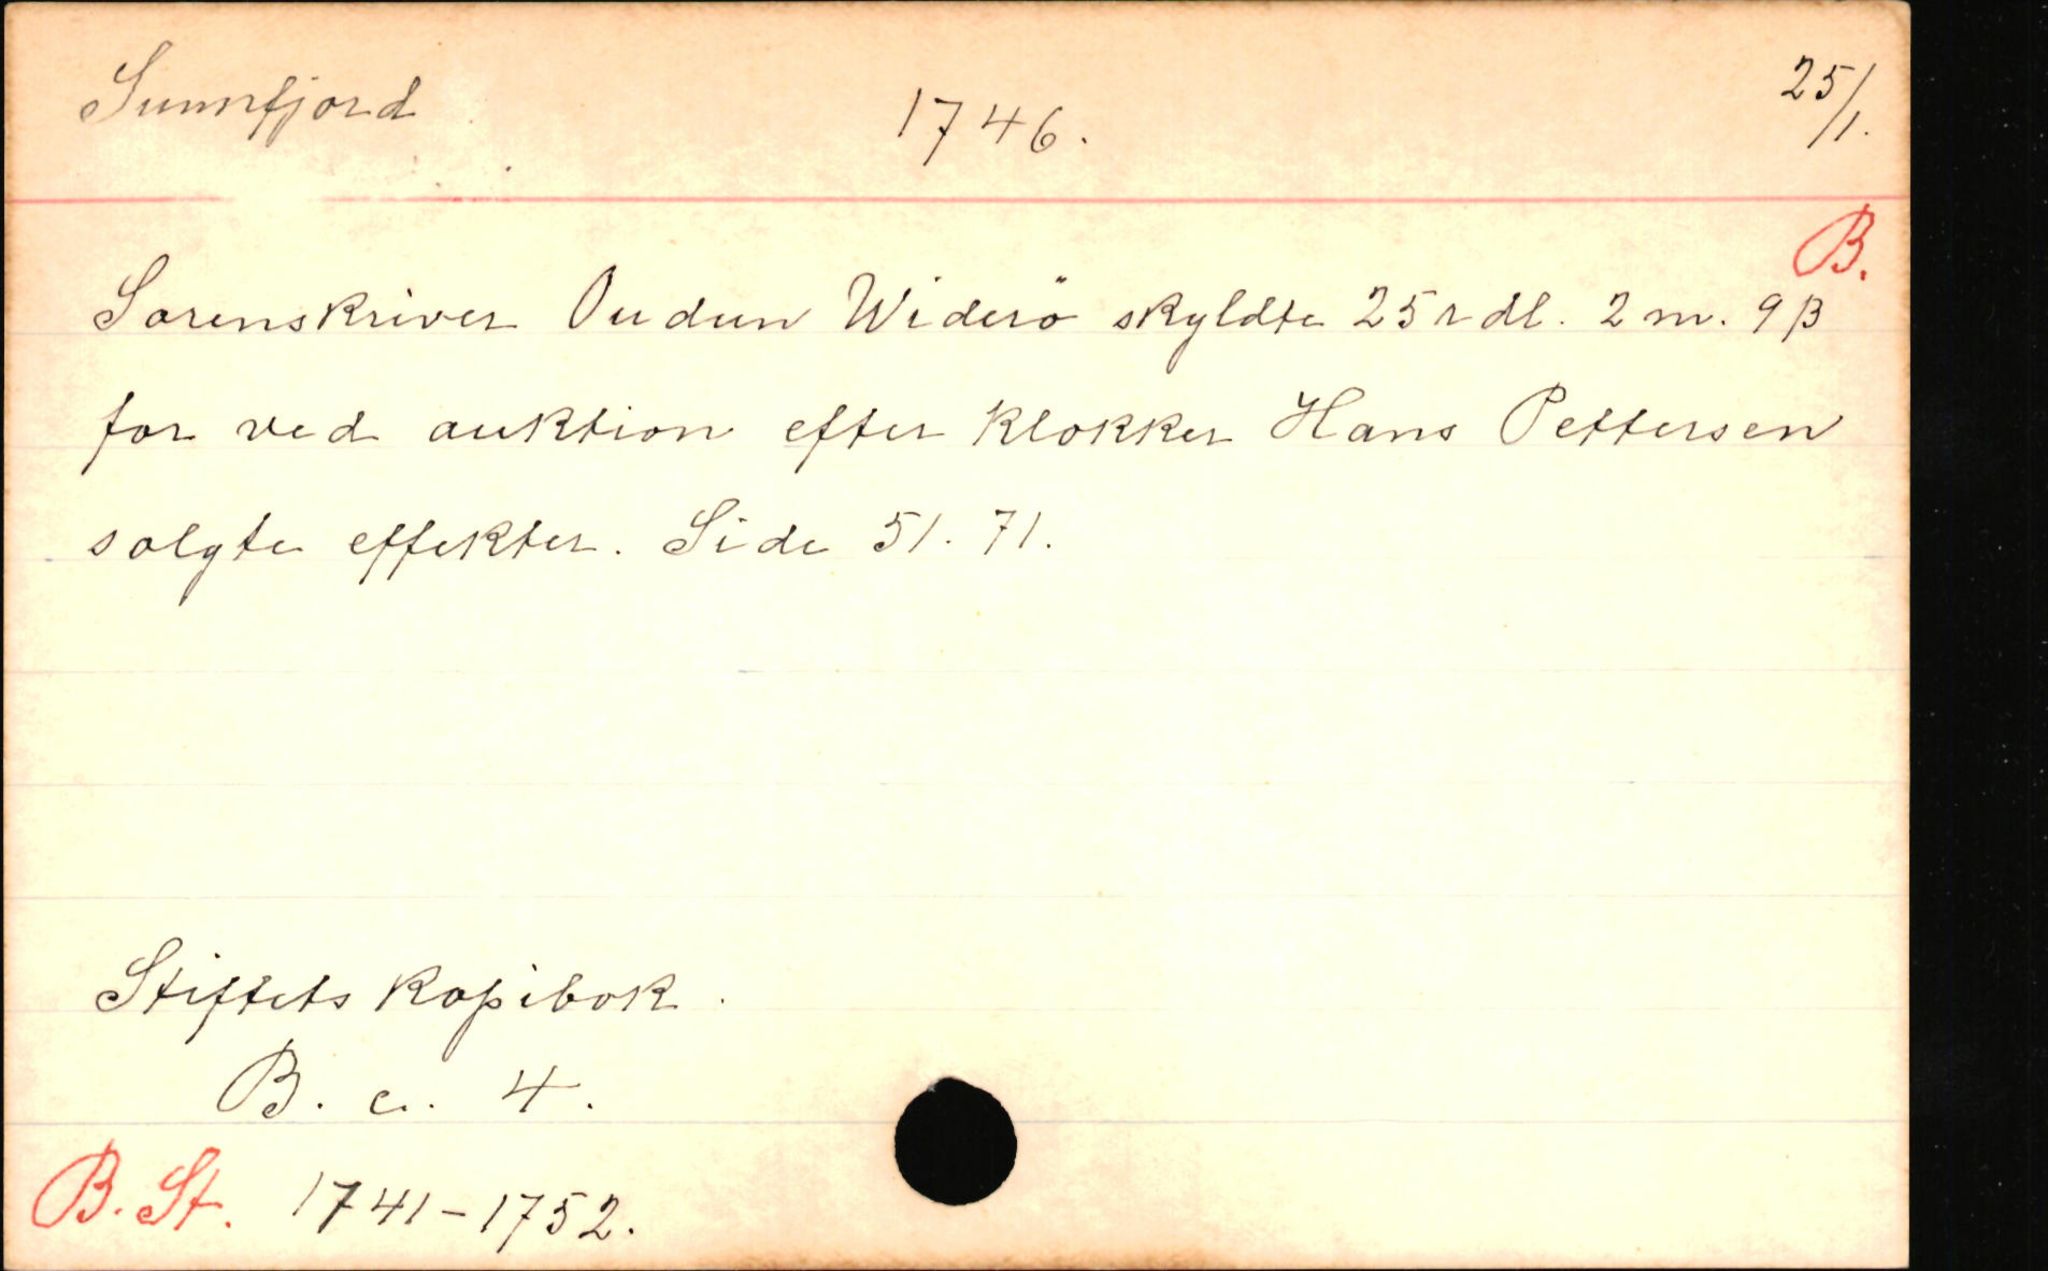 Sunnfjord 1746. 25/1.
B.
Sorenskriver Oudun Widerö skyldte 25 rdl. 2 m. 9 β
for ved auktion efter klokker Hans Pettersen
solgte effekter. Side 51. 71.
Stiftets kopibok.
B. c. 4.
B. St. 1741-1752.